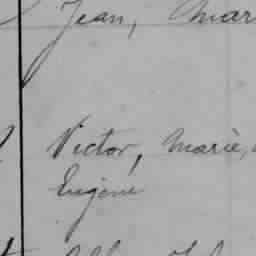 Jean, Mar
Victor, Marie,
Eugène